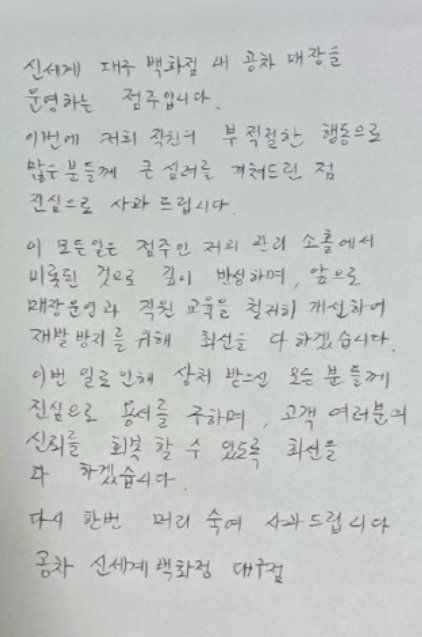 신세계 대구 백화점 내 공차 매장을
운영하는 점주입니다.
이번에 저희 직원의 부적절한 행동으로
많은 분들께 큰 심려를 끼쳐드린 점
진심으로 사과 드립니다.
이 모든일은 점주인 저의 관리 소홀에서
비롯된 것으로 깊이 반성하며, 앞으로
매장운영과 직원 교육을 철저히 개선하여
재발 방지를 위해 최선을 다 하겠습니다.
이번 일로 인해 상처 받으신 모든 분들께
진심으로 용서를 구하며, 고객 여러분의
신뢰를 회복 할 수 있도록 최선을
다 하겠습니다.
다시 한번 머리 숙여 사과드립니다
공차 신세계백화점 대구점